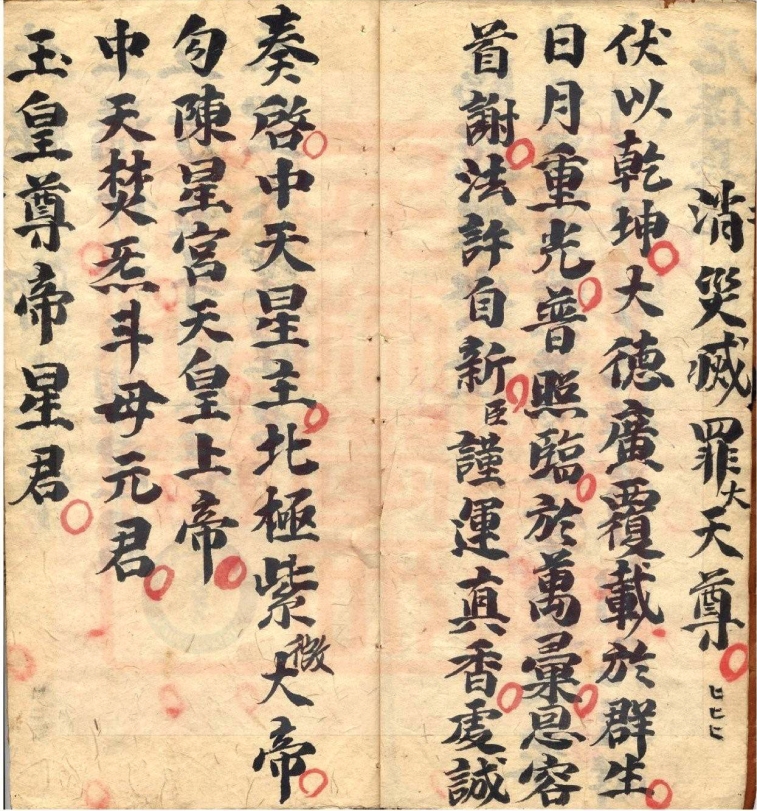 消災滅罪大天尊 匕匕匕
伏以乾坤大德廣覆載於群生
日月重光普照臨於萬彙恩容
首謝法許自新臣謹運真香虔誠
奏啓中天星主北極紫微大帝
勾陳星宮天皇上帝
中天焚炁斗母元君
玉皇尊帝星君